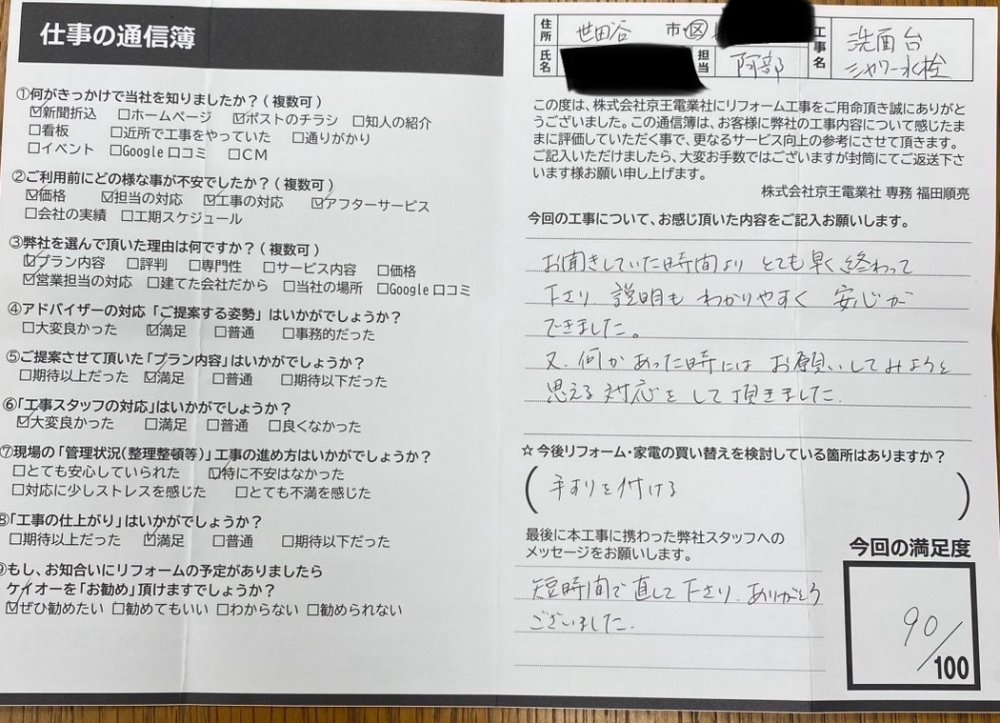 仕事の通信簿
①何がきっかけで当社を知りましたか？(複数可)
☑新聞折込 □ホームページ ☑ポストのチラシ □知人の紹介
□看板 □近所で工事をやっていた □通りがかり
□イベント □Google口コミ □CM
②ご利用前にどの様な事が不安でしたか？(複数可)
☑価格 ☑担当の対応 ☑工事の対応 ☑アフターサービス
□会社の実績 □工期スケジュール
③弊社を選んで頂いた理由は何ですか？(複数可)
☑プラン内容 □評判 □専門性 □サービス内容 □価格
☑営業担当の対応 □建てた会社だから □当社の場所 □Google口コミ
④アドバイザーの対応「ご提案する姿勢」はいかがでしょうか？
□大変良かった ☑満足 □普通 □事務的だった
⑤ご提案させて頂いた「プラン内容」はいかがでしょうか？
□期待以上だった ☑満足 □普通 □期待以下だった
⑥「工事スタッフの対応」はいかがでしょうか？
☑大変良かった □満足 □普通 □良くなかった
⑦現場の「管理状況(整理整頓等)」工事の進め方はいかがでしょうか？
□とても安心していられた ☑特に不安はなかった
□対応に少しストレスを感じた □とても不満を感じた
⑧「工事の仕上がり」はいかがでしょうか？
□期待以上だった ☑満足 □普通 □期待以下だった
⑨もし、お知合いにリフォームの予定がありましたら
ケイオーを「お勧め」頂けますでしょうか？
☑ぜひ勧めたい □勧めてもいい □わからない □勧められない
住所 世田谷 市・区 工事名 洗面台
氏名 担当 阿部 シャワー水栓
この度は、株式会社京王電業社にリフォーム工事をご用命頂き誠にありがと
うございました。この通信簿は、お客様に弊社の工事内容について感じたま
まに評価していただく事で、更なるサービス向上の参考にさせて頂きます。
ご記入いただけましたら、大変お手数ではございますが封筒にてご返送下さ
います様お願い申し上げます。
株式会社京王電業社 専務 福田順亮
今回の工事について、お感じ頂いた内容をご記入お願いします。
お聞きしていた時間より とても早く終わって
下さり 説明も わかりやすく 安心が
できました。
又、何かあった時には お願いしてみようと
思える対応をして頂きました.
☆今後リフォーム・家電の買い替えを検討している箇所はありますか？
(手すりを付ける)
最後に本工事に携わった弊社スタッフへの
メッセージをお願いします。
短時間で直して下さり、ありがとう
ございました.
今回の満足度
90/100